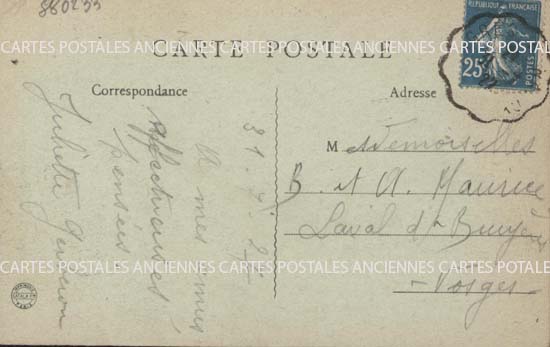 880233
RÉPUBLIQUE FRANÇAISE
25
POSTES
CARTES POSTALES ANCIENNES CARTES POSTALES ANCIENNES CARTES POTALES
CARTE POSTALE
Correspondance
Adresse
31. 7. 25
A mes amies
Affectueuses
pensées
Juliette
Mesdemoiselles
B. et A. Maurice
Laval dt Bruyères
Vosges
CARTES POSTALES ANCIENNES CARTES POSTALES ANCIENNES CARTES POTALES